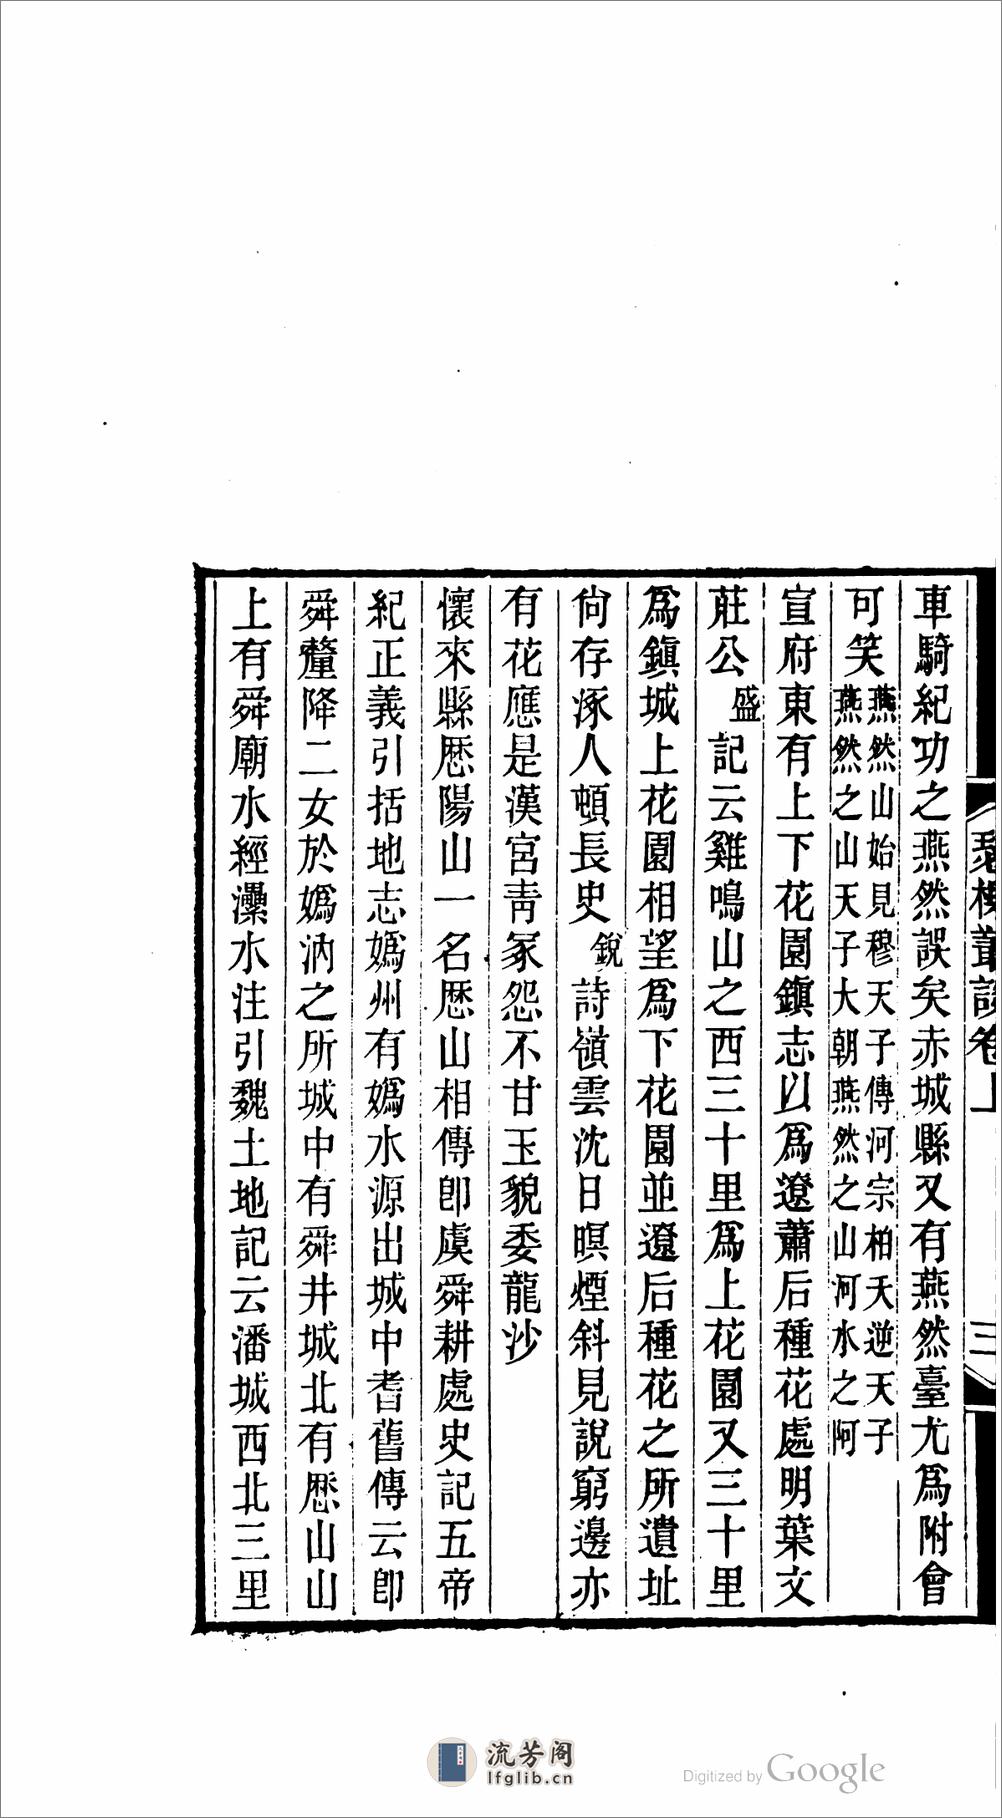 車騎紀功之燕然誤矣赤城縣又有燕然臺尤爲附會
可笑燕然山始見穆天子傳河宗柏夭逆天子
燕然之山天子大朝燕然之山河水之阿
宣府東有上下花園鎮志以爲遼蕭后種花處明葉文
莊公盛記云雞鳴山之西三十里爲上花園又三十里
爲鎮城上花園相望爲下花園並遼后種花之所遺址
尙存涿人頓長史銳詩嶺雲沈日暝煙斜見說窮邊亦
有花應是漢宮靑冢怨不甘玉貌委龍沙
懷來縣歷陽山一名歷山相傳卽虞舜耕處史記五帝
紀正義引括地志嬀州有嬀水源出城中耆舊傳云卽
舜釐降二女於嬀汭之所城中有舜井城北有歷山山
上有舜廟水經灅水注引魏土地記云潘城西北三里
瑟榭叢談卷上
三
流芳阁
lfglib.cn
Digitized by Google